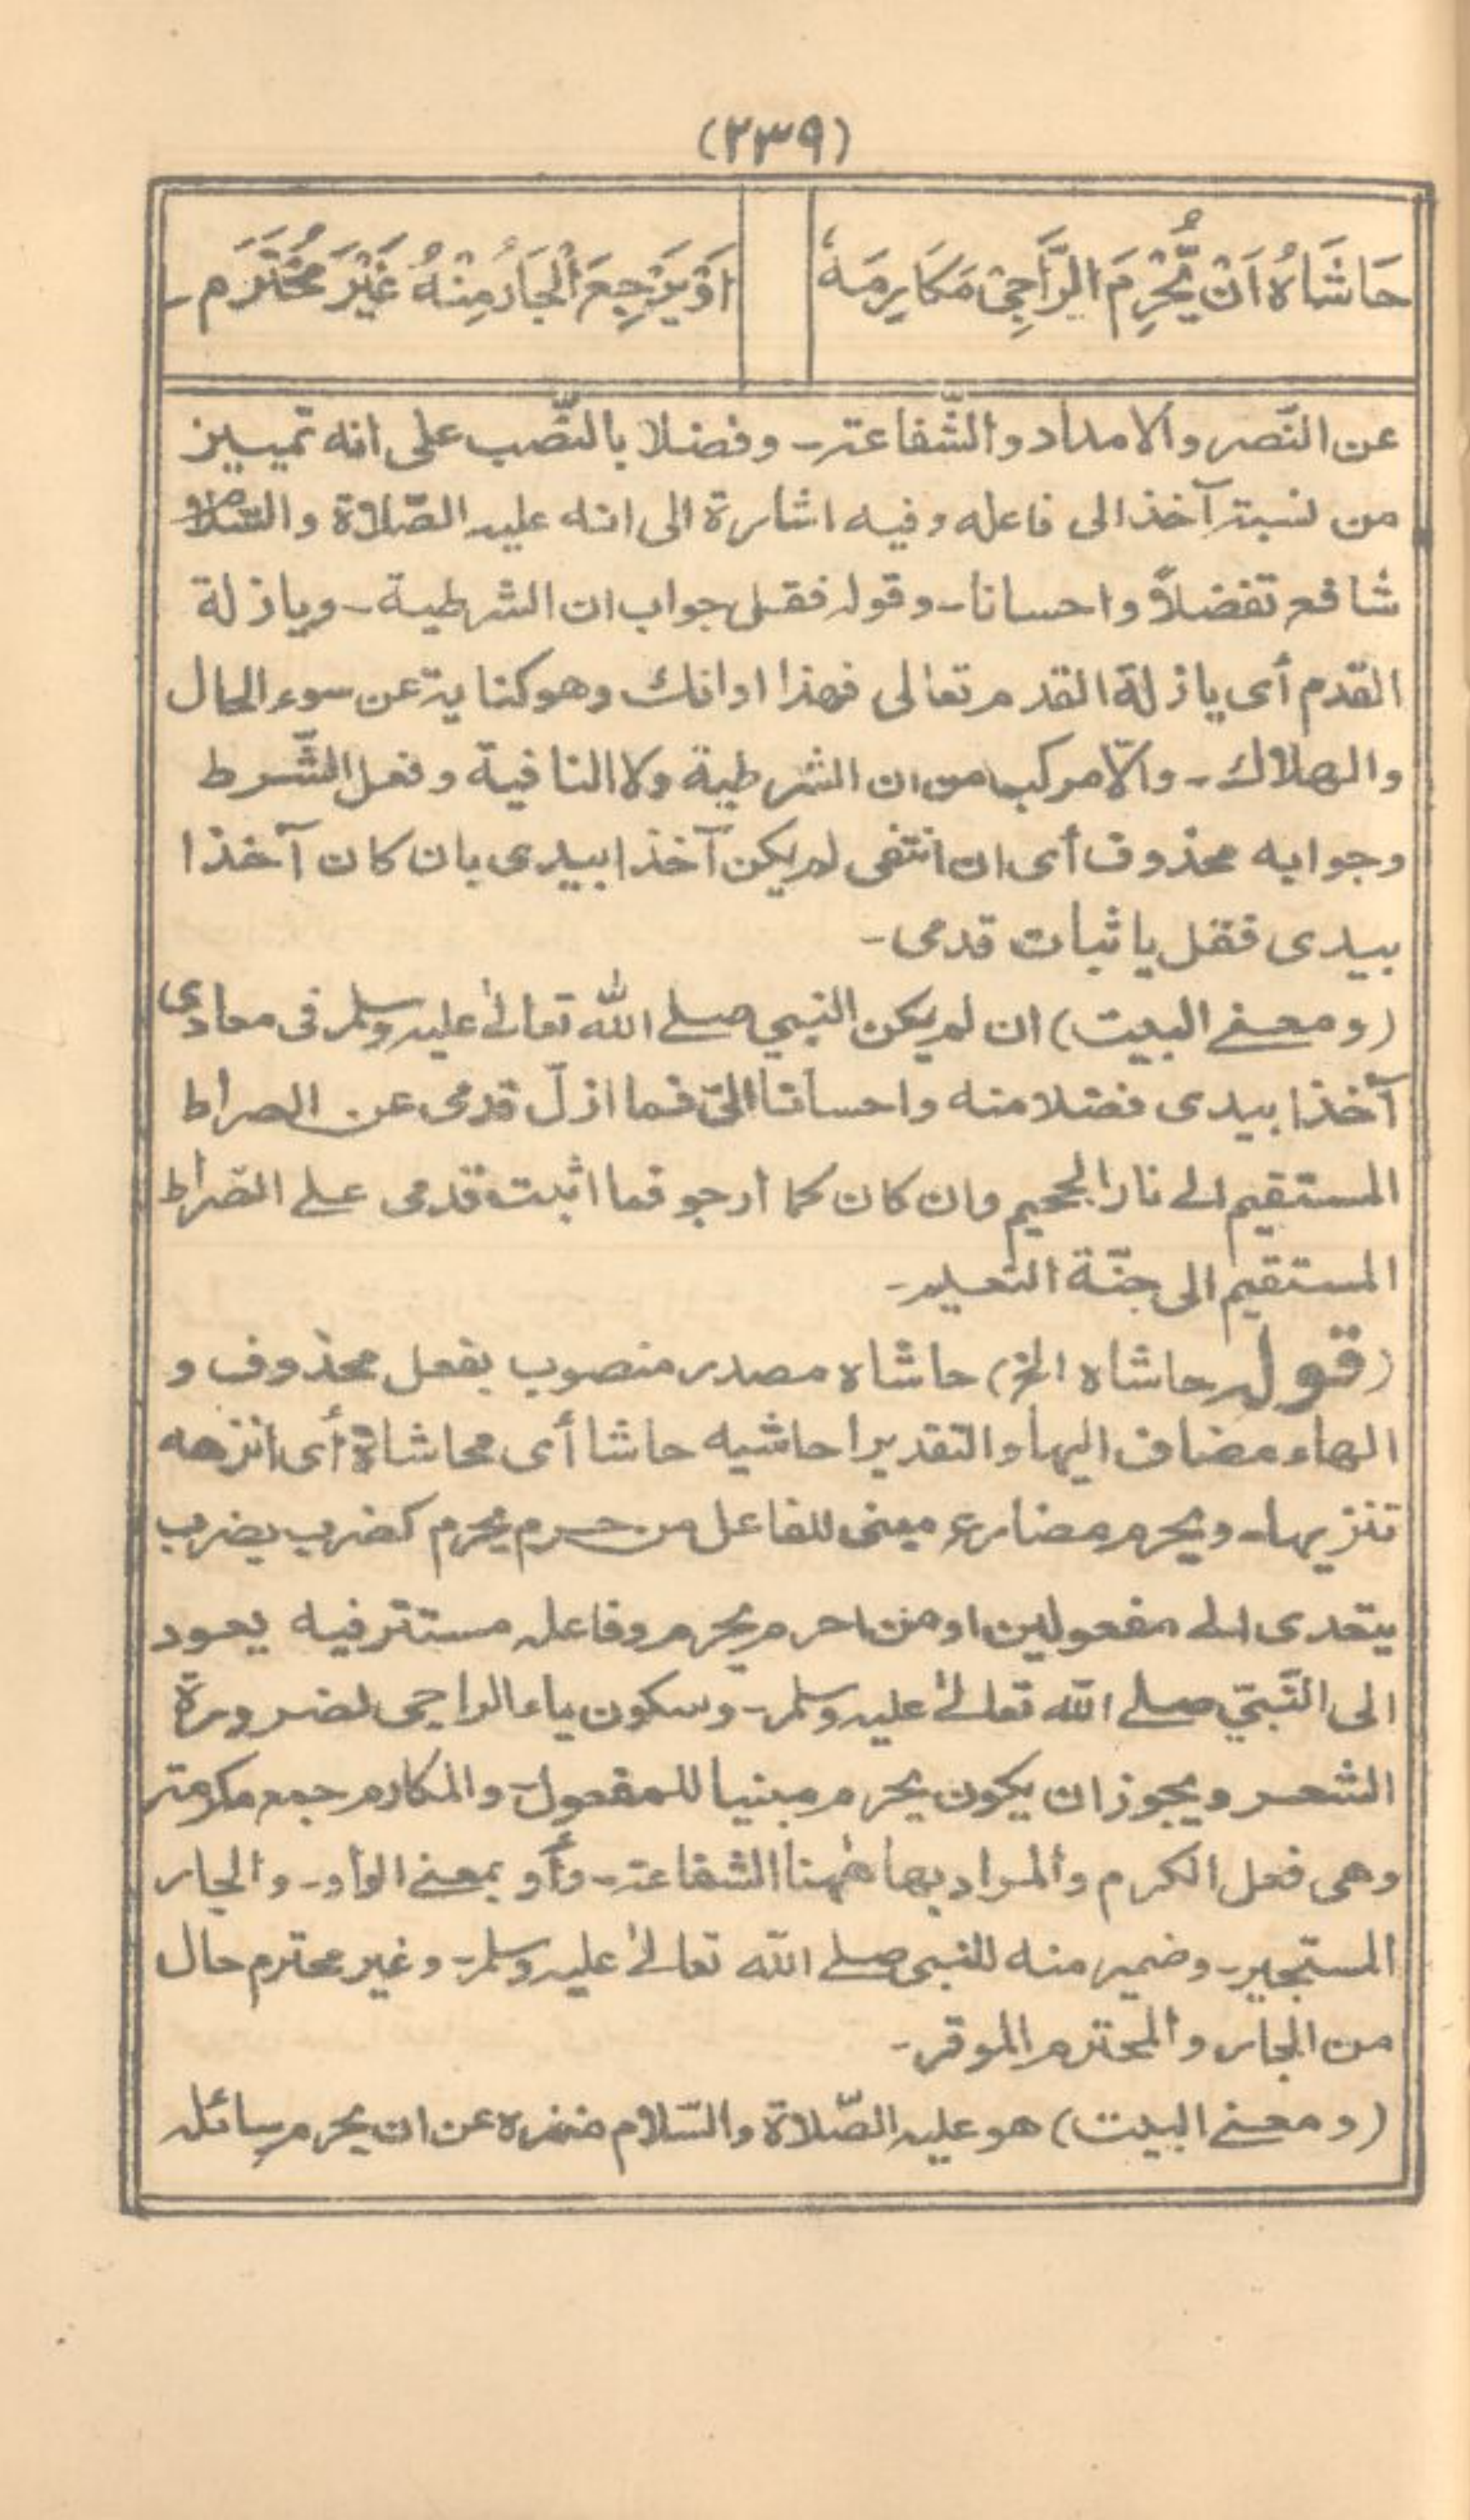 (٢٣٩)
حَاشَاهُ اَنْ يُّحْرِمَ الرَّاجِىْ مَكَارِمَهٗ اَوْ يَرْجِعَ الْجَارُ مِنْهُ غَيْرَ مُحْتَرَمٖ۔
عن النّصر والامداد والشّفاعة۔ وفضلا بالنّصب على انه تمييز
من نسبة آخذ الى فاعله وفيه اشارة الى انه عليه الصّلاة والسّلام
شافع تفضلاً واحسانا۔ وقوله فقل جواب ان الشرطية۔ ويا زلة
القدم أى يا زلة القدم تعالى فهذا اوانك وهو كناية عن سوء الحال
والهلاك۔ والّا مركب من ان الشرطية ولا النافية وفعل الشّرط
وجوابه محذوف أى ان انتفى لم يكن آخذا بيدى بان كان آخذا
بيدى فقل يا ثبات قدمى۔
(ومعنے البيت) ان لم يكن النبي صلے الله تعالےٰ عليه وسلم فى معادى
آخذا بيدى فضلا منه واحسانا الىّ فما ازلّ قدمى عن الصراط
المستقيم الے نار الجحيم وان كان كما ارجو فما اثبت قدمى علے الصّراط
المستقيم الى جنّة النّعيم۔
(قوله حاشاه الخ) حاشاه مصدر منصوب بفعل محذوف و
الهاء مضاف اليها والتقدير احاشيه حاشا أى محاشاة أى انزهه
تنزيها۔ ويحرم مضارع مبنى للفاعل من حرم يحرم كضرب يضرب
يتعدى الے مفعولين او من احرم يحرم وفاعله مستتر فيه يعود
الى النّبيّ صلے الله تعالےٰ عليه وسلم۔ وسكون ياء الراجى لضرورة
الشعر ويجوز ان يكون يحرم مبنيا للمفعول۔ والمكارم جمع مكرمة
وهى فعل الكرم والمراد بها هٰهنا الشفاعة۔ وأو بمعنے الواو۔ والجار
المستجير۔ وضمير منه للنبى صلے الله تعالےٰ عليه وسلم۔ وغير محترم حال
من الجار والمحترم الموقر۔
(ومعنے البيت) هو عليه الصّلاة والسّلام منزه عن ان يحرم سائله